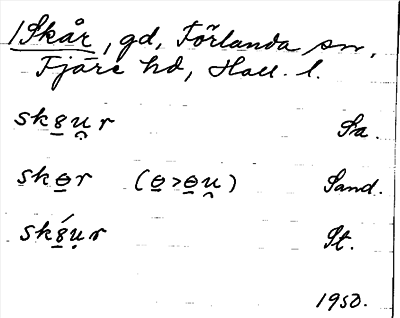 /Skår, gd, Förlanda sn,
Fjäre hd, Hall. l.
sk8̲u̯r Sa.
skɵ̲r (ɵ̲>ɵ̲u̯) Sand.
sk8̲́ụr St.
1950.